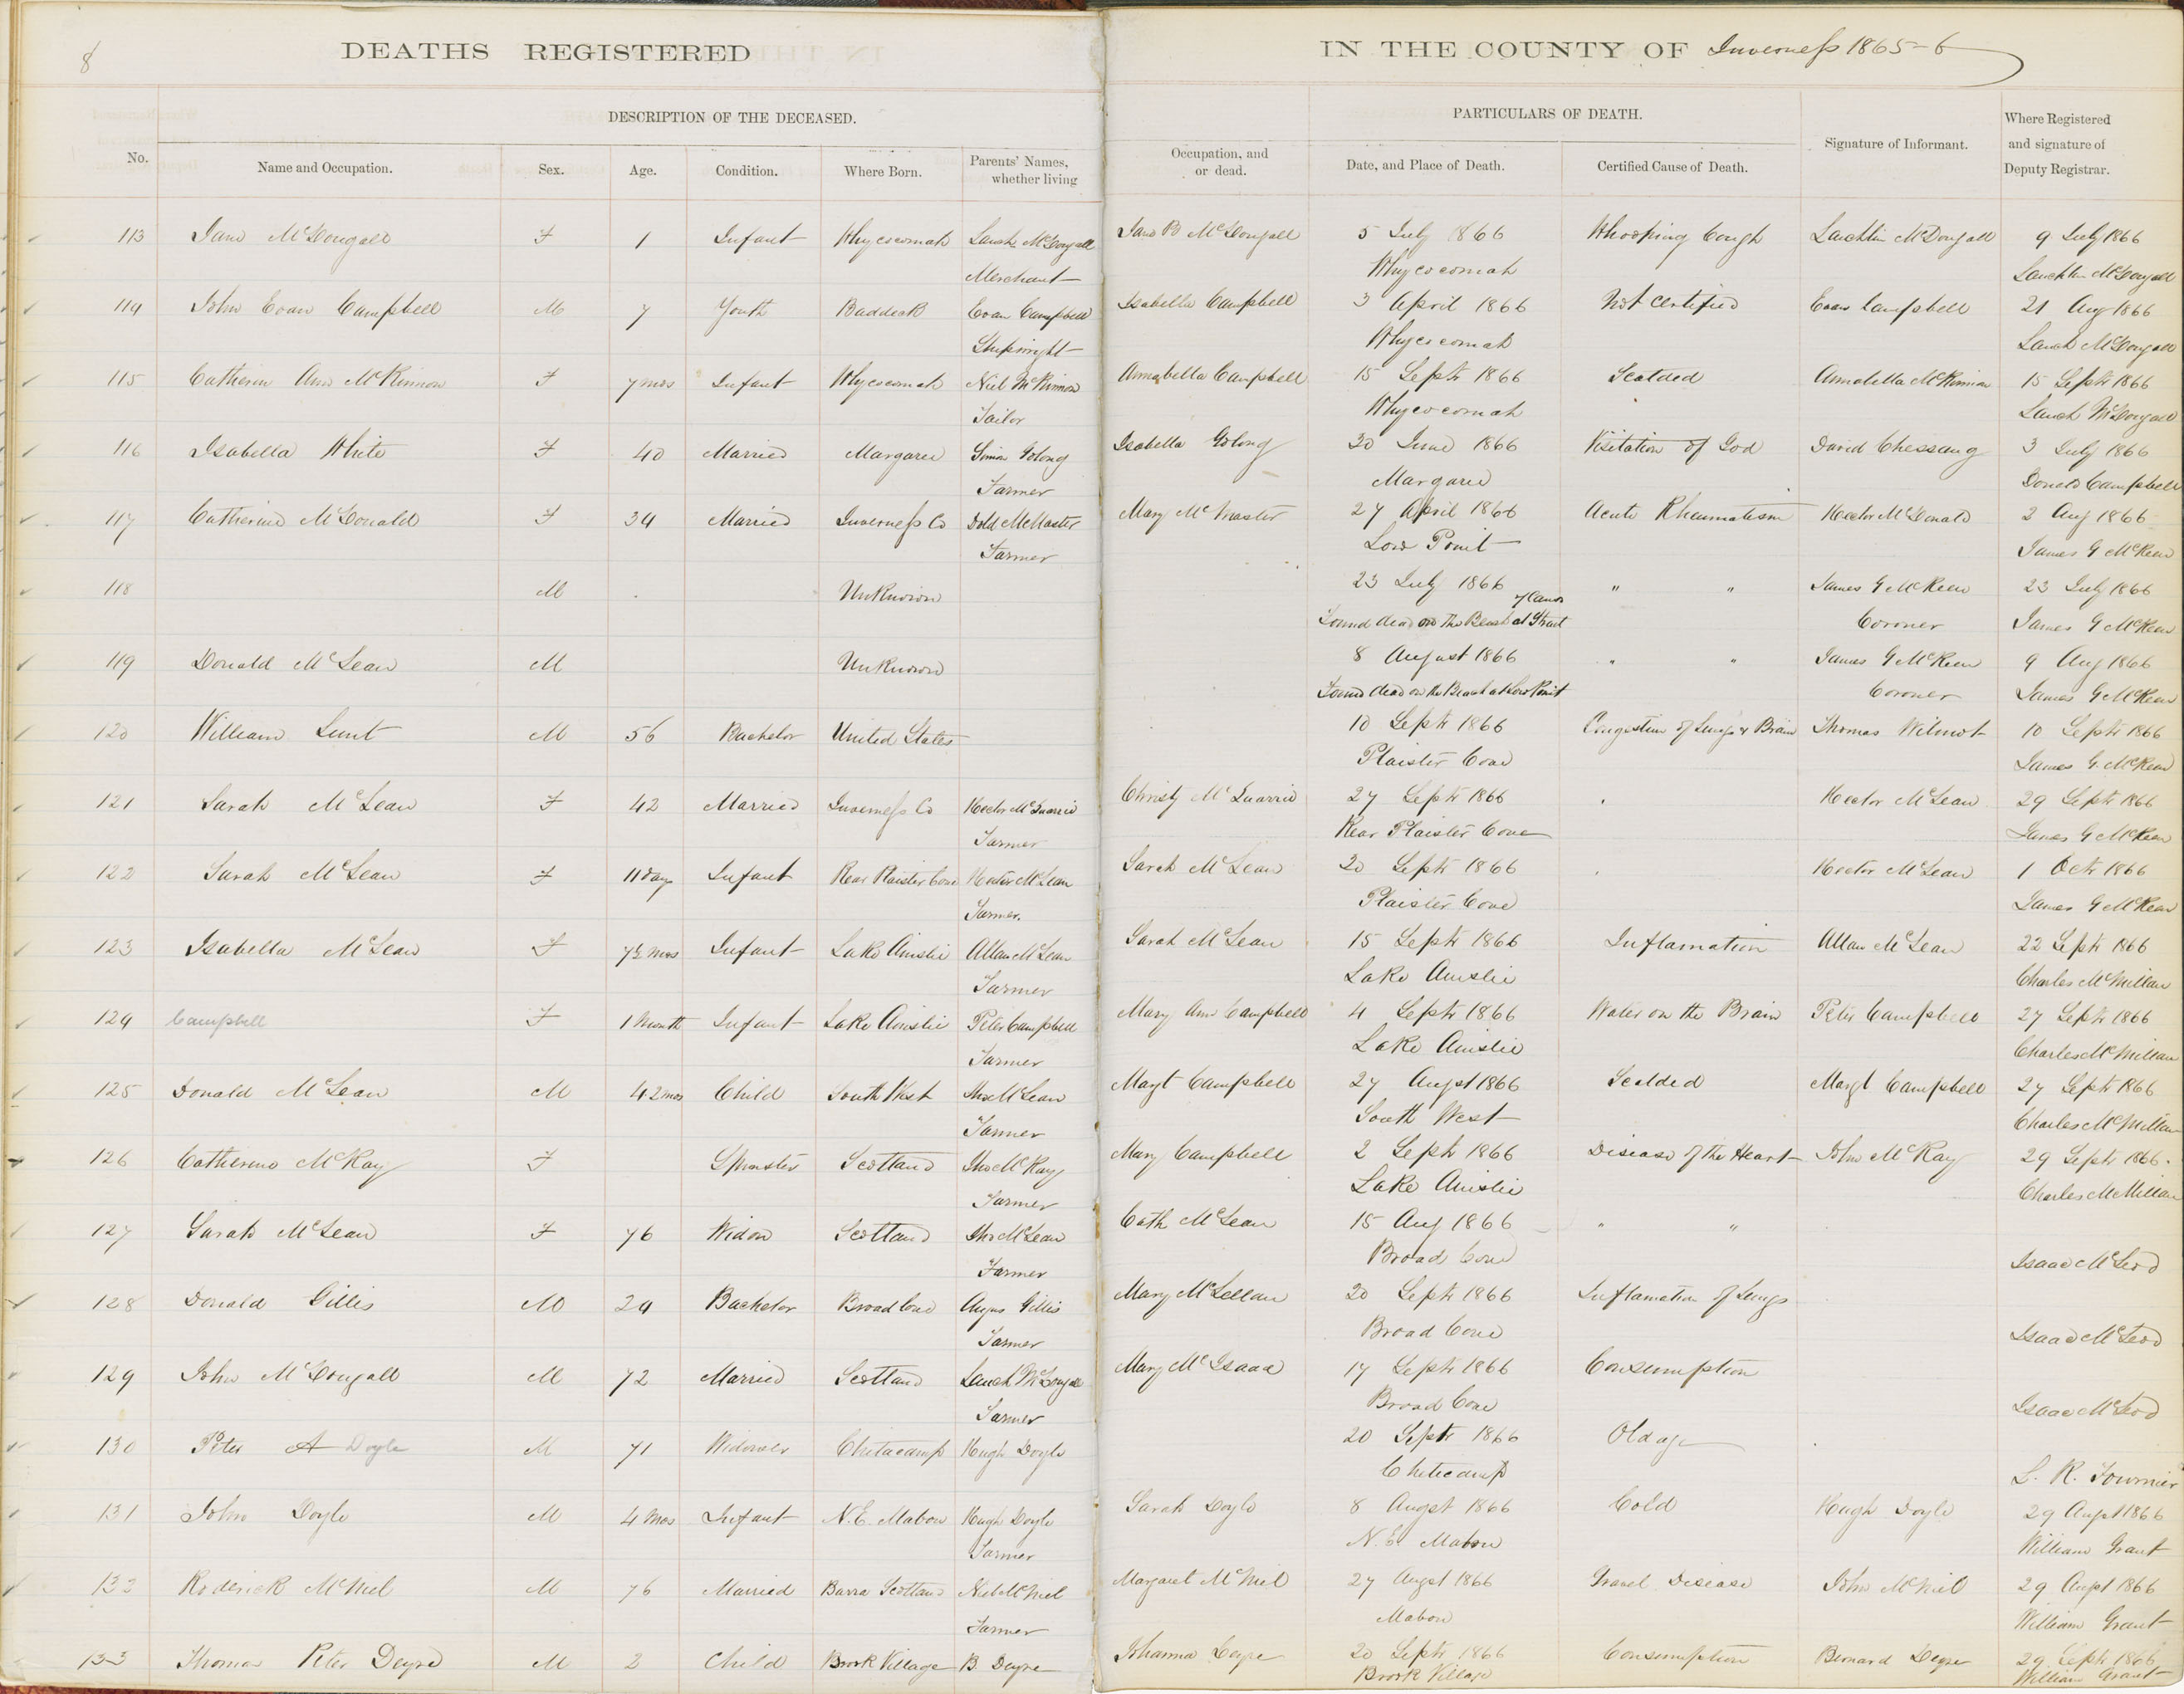 8
DEATHS REGISTERED IN THE COUNTY OF Inverness 1865-6
DESCRIPTION OF THE DECEASED. PARTICULARS OF DEATH.
No. Name and Occupation. Sex. Age. Condition. Where Born. Parents' Names, whether living Occupation, and or dead. Date, and Place of Death. Certified Cause of Death. Signature of Informant. Where Registered and signature of Deputy Registrar.
113 Jane McDougall F 1 Infant Whycocomah Lauch McDougall Jane B McDougall 5 July 1866 Whooping Cough Lauchlin McDougall 9 July 1866
Merchant Whycocomah Lauchlin McDougall
114 John Evan Campbell M 7 Youth Baddeck Evan Campbell Isabella Campbell 3 April 1866 Not Certified Evan Campbell 21 Aug 1866
Shipwright Whycocomah Lauch McDougall
115 Catherine Ann McKinnon F 7 mos Infant Whycocomah Niel McKinnon Annabella Campbell 15 Septr 1866 Scalded Annabella McKinnon 15 Septr 1866
Tailor Whycocomah Lauch McDougall
116 Isabella White F 40 Married Margaree Simon Golong Isabella Golong 30 June 1866 Visitation of God David Chessang 3 July 1866
Farmer Margaree Donald Campbell
117 Catherine McDonald F 34 Married Inverness Co Dold McMaster Mary McMaster 27 April 1866 Acute Rheumatism Hector McDonald 2 Aug 1866
Farmer Low Point James G McKeen
118 M Unknown 23 July 1866 " " James G McKeen 23 July 1866
Found dead on the Beach at Strait of Canso Coroner James G McKeen
119 Donald McLean M Unknown 8 August 1866 " " James G McKeen 9 Aug 1866
Found dead on the Beach at Low Point Coroner James G McKeen
120 William Lunt M 56 Bachelor United States 10 Septr 1866 Congestion of Lungs & Brain Thomas Wilmot 10 Septr 1866
Plaister Cove James G. McKeen
121 Sarah McLean F 42 Married Inverness Co Hector McQuarrie Christy McQuarrie 27 Septr 1866 Hector McLean 29 Septr 1866
Farmer Rear Plaister Cove James G McKeen
122 Sarah McLean F 11 days Infant Rear Plaister Cove Hector McLean Sarah McLean 20 Septr 1866 Hector McLean 1 Octr 1866
Farmer. Plaister Cove James G McKeen
123 Isabella McLean F 7½ mos Infant Lake Ainslie Allan McLean Sarah McLean 15 Septr 1866 Inflamation Allan McLean 22 Septr 1866
Farmer Lake Ainslie Charles McMillan
124 Campbell F 1 Month Infant Lake Ainslie Peter Campbell Mary Ann Campbell 4 Septr 1866 Water on the Brain Peter Campbell 27 Septr 1866
Farmer Lake Ainslie Charles McMillan
125 Donald McLean M 42 mos Child South West Jno McLean Magt Campbell 27 Augst 1866 Scalded Margt Campbell 27 Septr 1866
Farmer South West Charles McMillan
126 Catherine McKay F Spinster Scotland Jno McKay Mary Campbell 2 Septr 1866 Disease of the Heart John McKay 29 Septr 1866.
Farmer Lake Ainslie Charles McMillan
127 Sarah McLean F 76 Widow Scotland Jno McLean Cath McLean 15 Aug 1866 " "
Farmer Broad Cove Isaac McLeod
128 Donald Gillis M 24 Bachelor Broad Cove Angus Gillis Mary McLellan 20 Septr 1866 Inflamation of Lungs
Farmer Broad Cove Isaac McLeod
129 John McDougall M 72 Married Scotland Lauch McDougall Mary McIsaac 17 Septr 1866 Consumption
Farmer Broad Cove Isaac McLeod
130 Peter A Doyle M 71 Widower Chitacamp Hugh Doyle 20 Septr 1866 Old age
Cheticamp L. R. Fournier
131 John Doyle M 4 Mos Infant N.E. Mabou Hugh Doyle Sarah Doyle 8 Augst 1866 Cold Hugh Doyle 29 Augst 1866
Farmer N.E. Mabou William Grant
132 Roderick McNiel M 76 Married Barra Scotland Niel McNiel Margaret McNiel 27 Augst 1866 Gravel Disease John McNiel 29 Augst 1866
Farmer Mabou William Grant
133 Thomas Peter Deyre M 2 Child Brook Village B. Deyre Johanna Deyre 20 Septr 1866 Consumption Bernard Deyre 29 Septr 1866
Brook Village William Grant